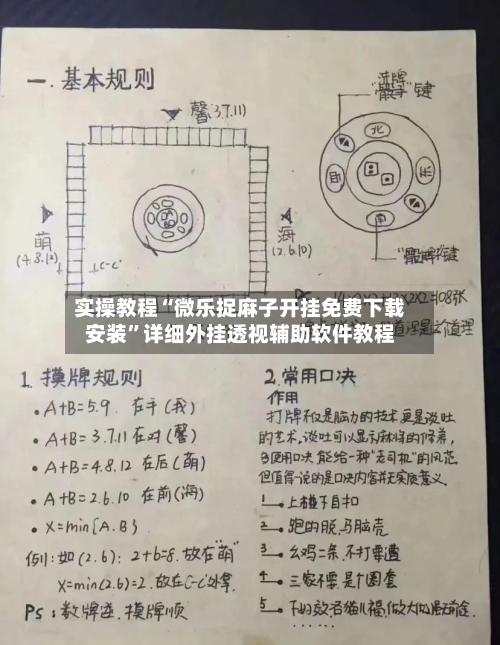 一.基本规则
"洗牌
骰子"键
馨(3.7.11)
北
西
东
南
萌
(4.8.12)
C-C'
海
(2.6.10)
"骰牌"键
实操教程“微乐捉麻子开挂免费下载
安装”详细外挂透视辅助软件教程
X2=108张
道理是这个道理
1.摸牌规则
• A+B=5.9. 在手(我)
• A+B=3.7.11 在对(馨)
• A+B=4.8.12 在后(萌)
• A+B=2.6.10 在前(海)
• X=min{A.B}
例:如(2.6): 2+b=8.放在"萌"
X=min(2.6)=2.故在C-C'处拿.
Ps:数牌逆.摸牌顺
2.常用口决
作用
打牌不仅是脑力的技术更是谈吐
的艺术,谈吐可以显示麻将的修养,
口决能给一种"老司机"的风范
但值得一说的是口决内容并无实质意义.
1. 上碰下自扣
2. 跑的脱,马脑壳
3. 幺鸡二条,不打要遭
4. 三家不要,是个圈套
5.
......